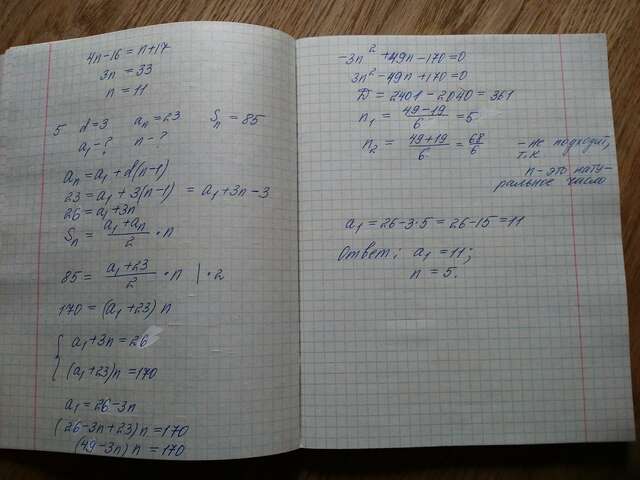 4n-16 = n+17
3n = 33
n = 11
5 d=3 an=23 Sn = 85
a1-? n-?
an = a1 + d(n-1)
23 = a1 + 3(n-1) = a1+3n-3
26 = a1+3n
Sn = (a1+an)/2 · n
85 = (a1+23)/2 · n | ·2
170 = (a1+23) n
{ a1+3n = 26
(a1+23)n = 170
a1 = 26-3n
(26-3n+23)n = 170
(49-3n) n = 170
-3n² + 49n - 170 = 0
3n² - 49n + 170 = 0
D = 2401 - 2040 = 361
n1 = (49-19)/6 = 5
n2 = (49+19)/6 = 68/6 - не подходит,
т.к
n - это нату-
ральное число
a1 = 26-3·5 = 26-15 = 11
Ответ: a1 = 11;
n = 5.